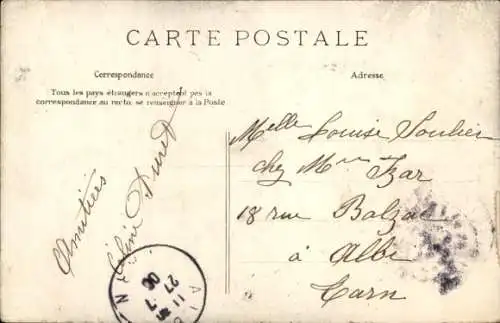 CARTE POSTALE
Correspondance
Adresse
Tous les pays étrangers n'acceptent pas la
correspondance au recto, se renseigner à la Poste
Amitiées
Céline Duret
Melle Louise Soulier
chez Mme Izar
18 rue Balzac
à Albi
Tarn
27